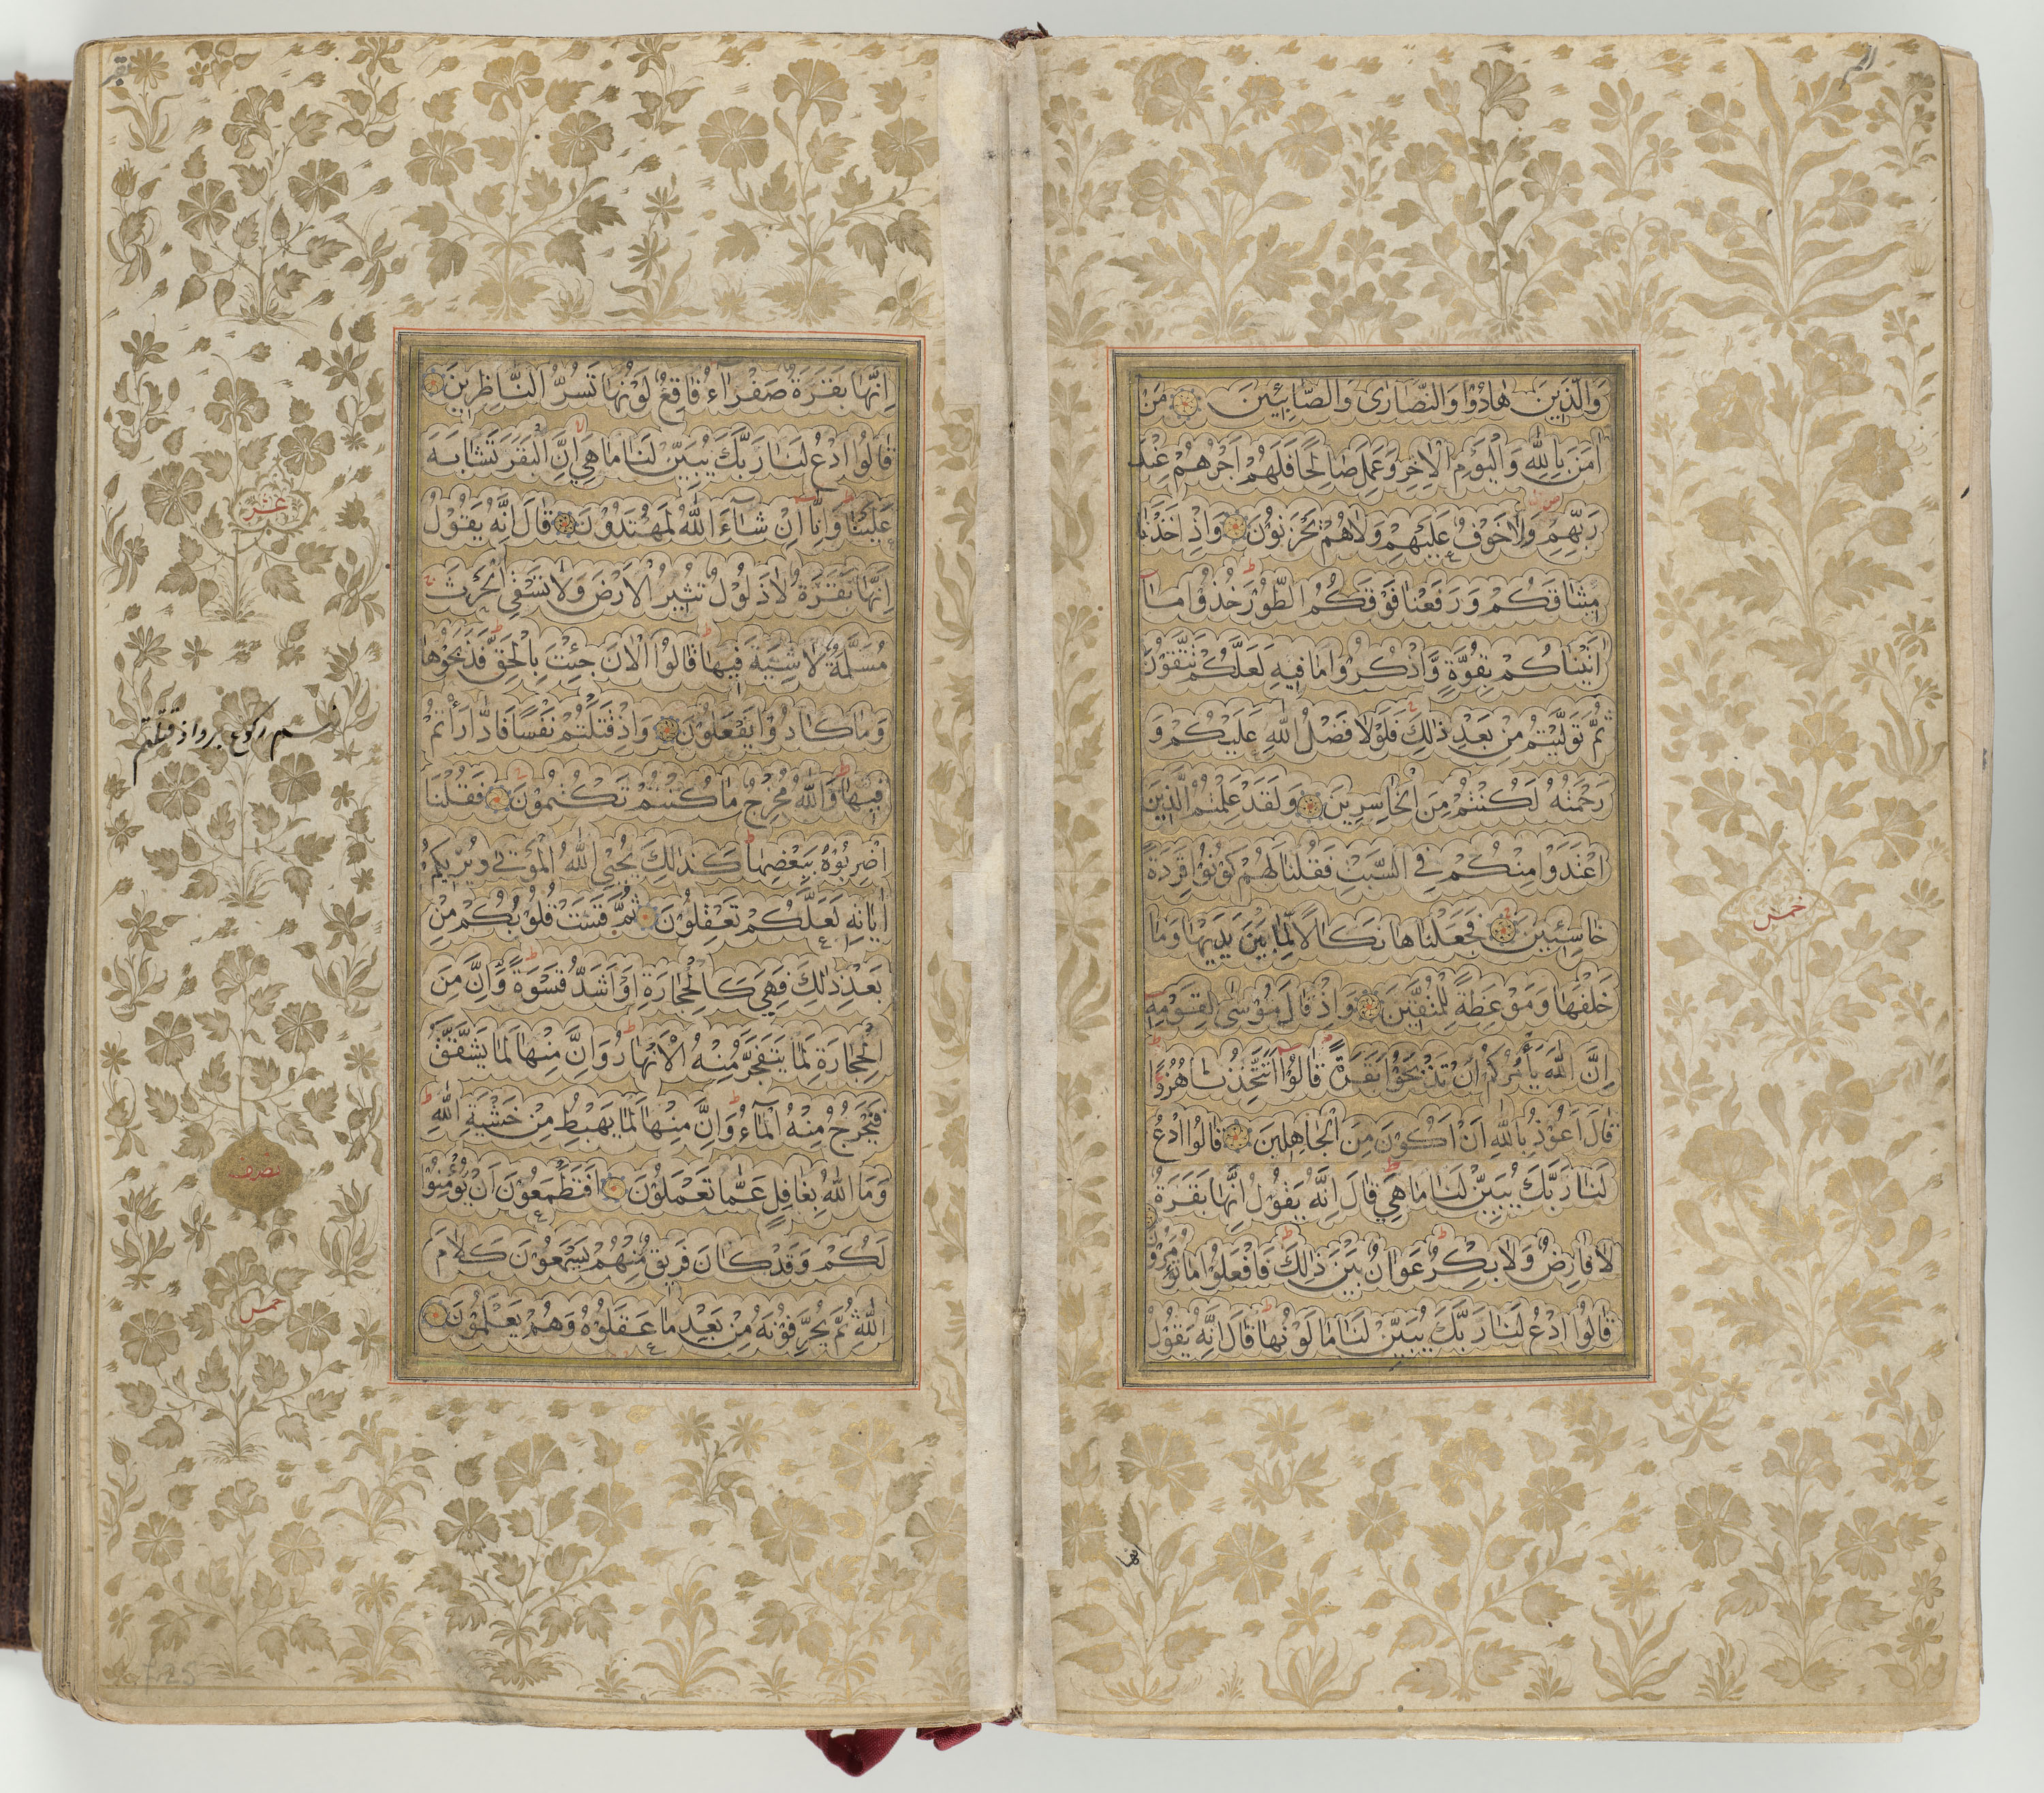 وَالَّذِينَ هَادُوا وَالنَّصَارَىٰ وَالصَّابِئِينَ مَنْ
اٰمَنَ بِاللّٰهِ وَالْيَوْمِ الْاٰخِرِ وَعَمِلَ صَالِحًا فَلَهُمْ اَجْرُهُمْ عِنْدَ
رَبِّهِمْ وَلَا خَوْفٌ عَلَيْهِمْ وَلَا هُمْ يَحْزَنُونَ وَاِذْ اَخَذْنَا
مِيثَاقَكُمْ وَرَفَعْنَا فَوْقَكُمُ الطُّورَ خُذُوا مَا
اٰتَيْنَاكُمْ بِقُوَّةٍ وَاذْكُرُوا مَا فِيهِ لَعَلَّكُمْ تَتَّقُونَ
ثُمَّ تَوَلَّيْتُمْ مِنْ بَعْدِ ذٰلِكَ فَلَوْلَا فَضْلُ اللّٰهِ عَلَيْكُمْ وَ
رَحْمَتُهُ لَكُنْتُمْ مِنَ الْخَاسِرِينَ وَلَقَدْ عَلِمْتُمُ الَّذِينَ
اعْتَدَوْا مِنْكُمْ فِي السَّبْتِ فَقُلْنَا لَهُمْ كُونُوا قِرَدَةً
خَاسِئِينَ فَجَعَلْنَاهَا نَكَالًا لِمَا بَيْنَ يَدَيْهَا وَمَا
خَلْفَهَا وَمَوْعِظَةً لِلْمُتَّقِينَ وَاِذْ قَالَ مُوسٰى لِقَوْمِهِ
اِنَّ اللّٰهَ يَأْمُرُكُمْ اَنْ تَذْبَحُوا بَقَرَةً قَالُوا اَتَتَّخِذُنَا هُزُوًا
قَالَ اَعُوذُ بِاللّٰهِ اَنْ اَكُونَ مِنَ الْجَاهِلِينَ قَالُوا ادْعُ
لَنَا رَبَّكَ يُبَيِّنْ لَنَا مَا هِيَ قَالَ اِنَّهُ يَقُولُ اِنَّهَا بَقَرَةٌ
لَا فَارِضٌ وَلَا بِكْرٌ عَوَانٌ بَيْنَ ذٰلِكَ فَافْعَلُوا مَا تُؤْمَرُونَ
قَالُوا ادْعُ لَنَا رَبَّكَ يُبَيِّنْ لَنَا مَا لَوْنُهَا قَالَ اِنَّهُ يَقُولُ
خمس
انها
اِنَّهَا بَقَرَةٌ صَفْرَاءُ فَاقِعٌ لَوْنُهَا تَسُرُّ النَّاظِرِينَ
قَالُوا ادْعُ لَنَا رَبَّكَ يُبَيِّنْ لَنَا مَا هِيَ اِنَّ الْبَقَرَ تَشَابَهَ
عَلَيْنَا وَاِنَّا اِنْ شَاءَ اللّٰهُ لَمُهْتَدُونَ قَالَ اِنَّهُ يَقُولُ
اِنَّهَا بَقَرَةٌ لَا ذَلُولٌ تُثِيرُ الْاَرْضَ وَلَا تَسْقِي الْحَرْثَ
مُسَلَّمَةٌ لَا شِيَةَ فِيهَا قَالُوا الْاٰنَ جِئْتَ بِالْحَقِّ فَذَبَحُوهَا
وَمَا كَادُوا يَفْعَلُونَ وَاِذْ قَتَلْتُمْ نَفْسًا فَادَّارَأْتُمْ
فِيهَا وَاللّٰهُ مُخْرِجٌ مَا كُنْتُمْ تَكْتُمُونَ فَقُلْنَا
اضْرِبُوهُ بِبَعْضِهَا كَذٰلِكَ يُحْيِي اللّٰهُ الْمَوْتٰى وَيُرِيكُمْ
اٰيَاتِهِ لَعَلَّكُمْ تَعْقِلُونَ ثُمَّ قَسَتْ قُلُوبُكُمْ مِنْ
بَعْدِ ذٰلِكَ فَهِيَ كَالْحِجَارَةِ اَوْ اَشَدُّ قَسْوَةً وَاِنَّ مِنَ
الْحِجَارَةِ لَمَا يَتَفَجَّرُ مِنْهُ الْاَنْهَارُ وَاِنَّ مِنْهَا لَمَا يَشَّقَّقُ
فَيَخْرُجُ مِنْهُ الْمَاءُ وَاِنَّ مِنْهَا لَمَا يَهْبِطُ مِنْ خَشْيَةِ اللّٰهِ
وَمَا اللّٰهُ بِغَافِلٍ عَمَّا تَعْمَلُونَ اَفَتَطْمَعُونَ اَنْ يُؤْمِنُوا
لَكُمْ وَقَدْ كَانَ فَرِيقٌ مِنْهُمْ يَسْمَعُونَ كَلَامَ
اللّٰهِ ثُمَّ يُحَرِّفُونَهُ مِنْ بَعْدِ مَا عَقَلُوهُ وَهُمْ يَعْلَمُونَ
عشر
ركوع بر واذ قتلتم
خمس